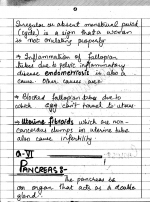 Irregular or absent menstrual period
(cycle) is a sign that a woman
is not ovulating properly
→ Inflammation of fallopian
tubes due to pelvic inflammatory
disease endometriosis is also a
cause other causes are
→ Blocked fallopian tubes due to
which egg can't travel to uterus
→ Uterine fibroids which are non-
cancerous clumps in uterine tube
also cause infertility.
Q-VI
PANCREAS:-
The pancreas is
an organ that acts as a double
gland.